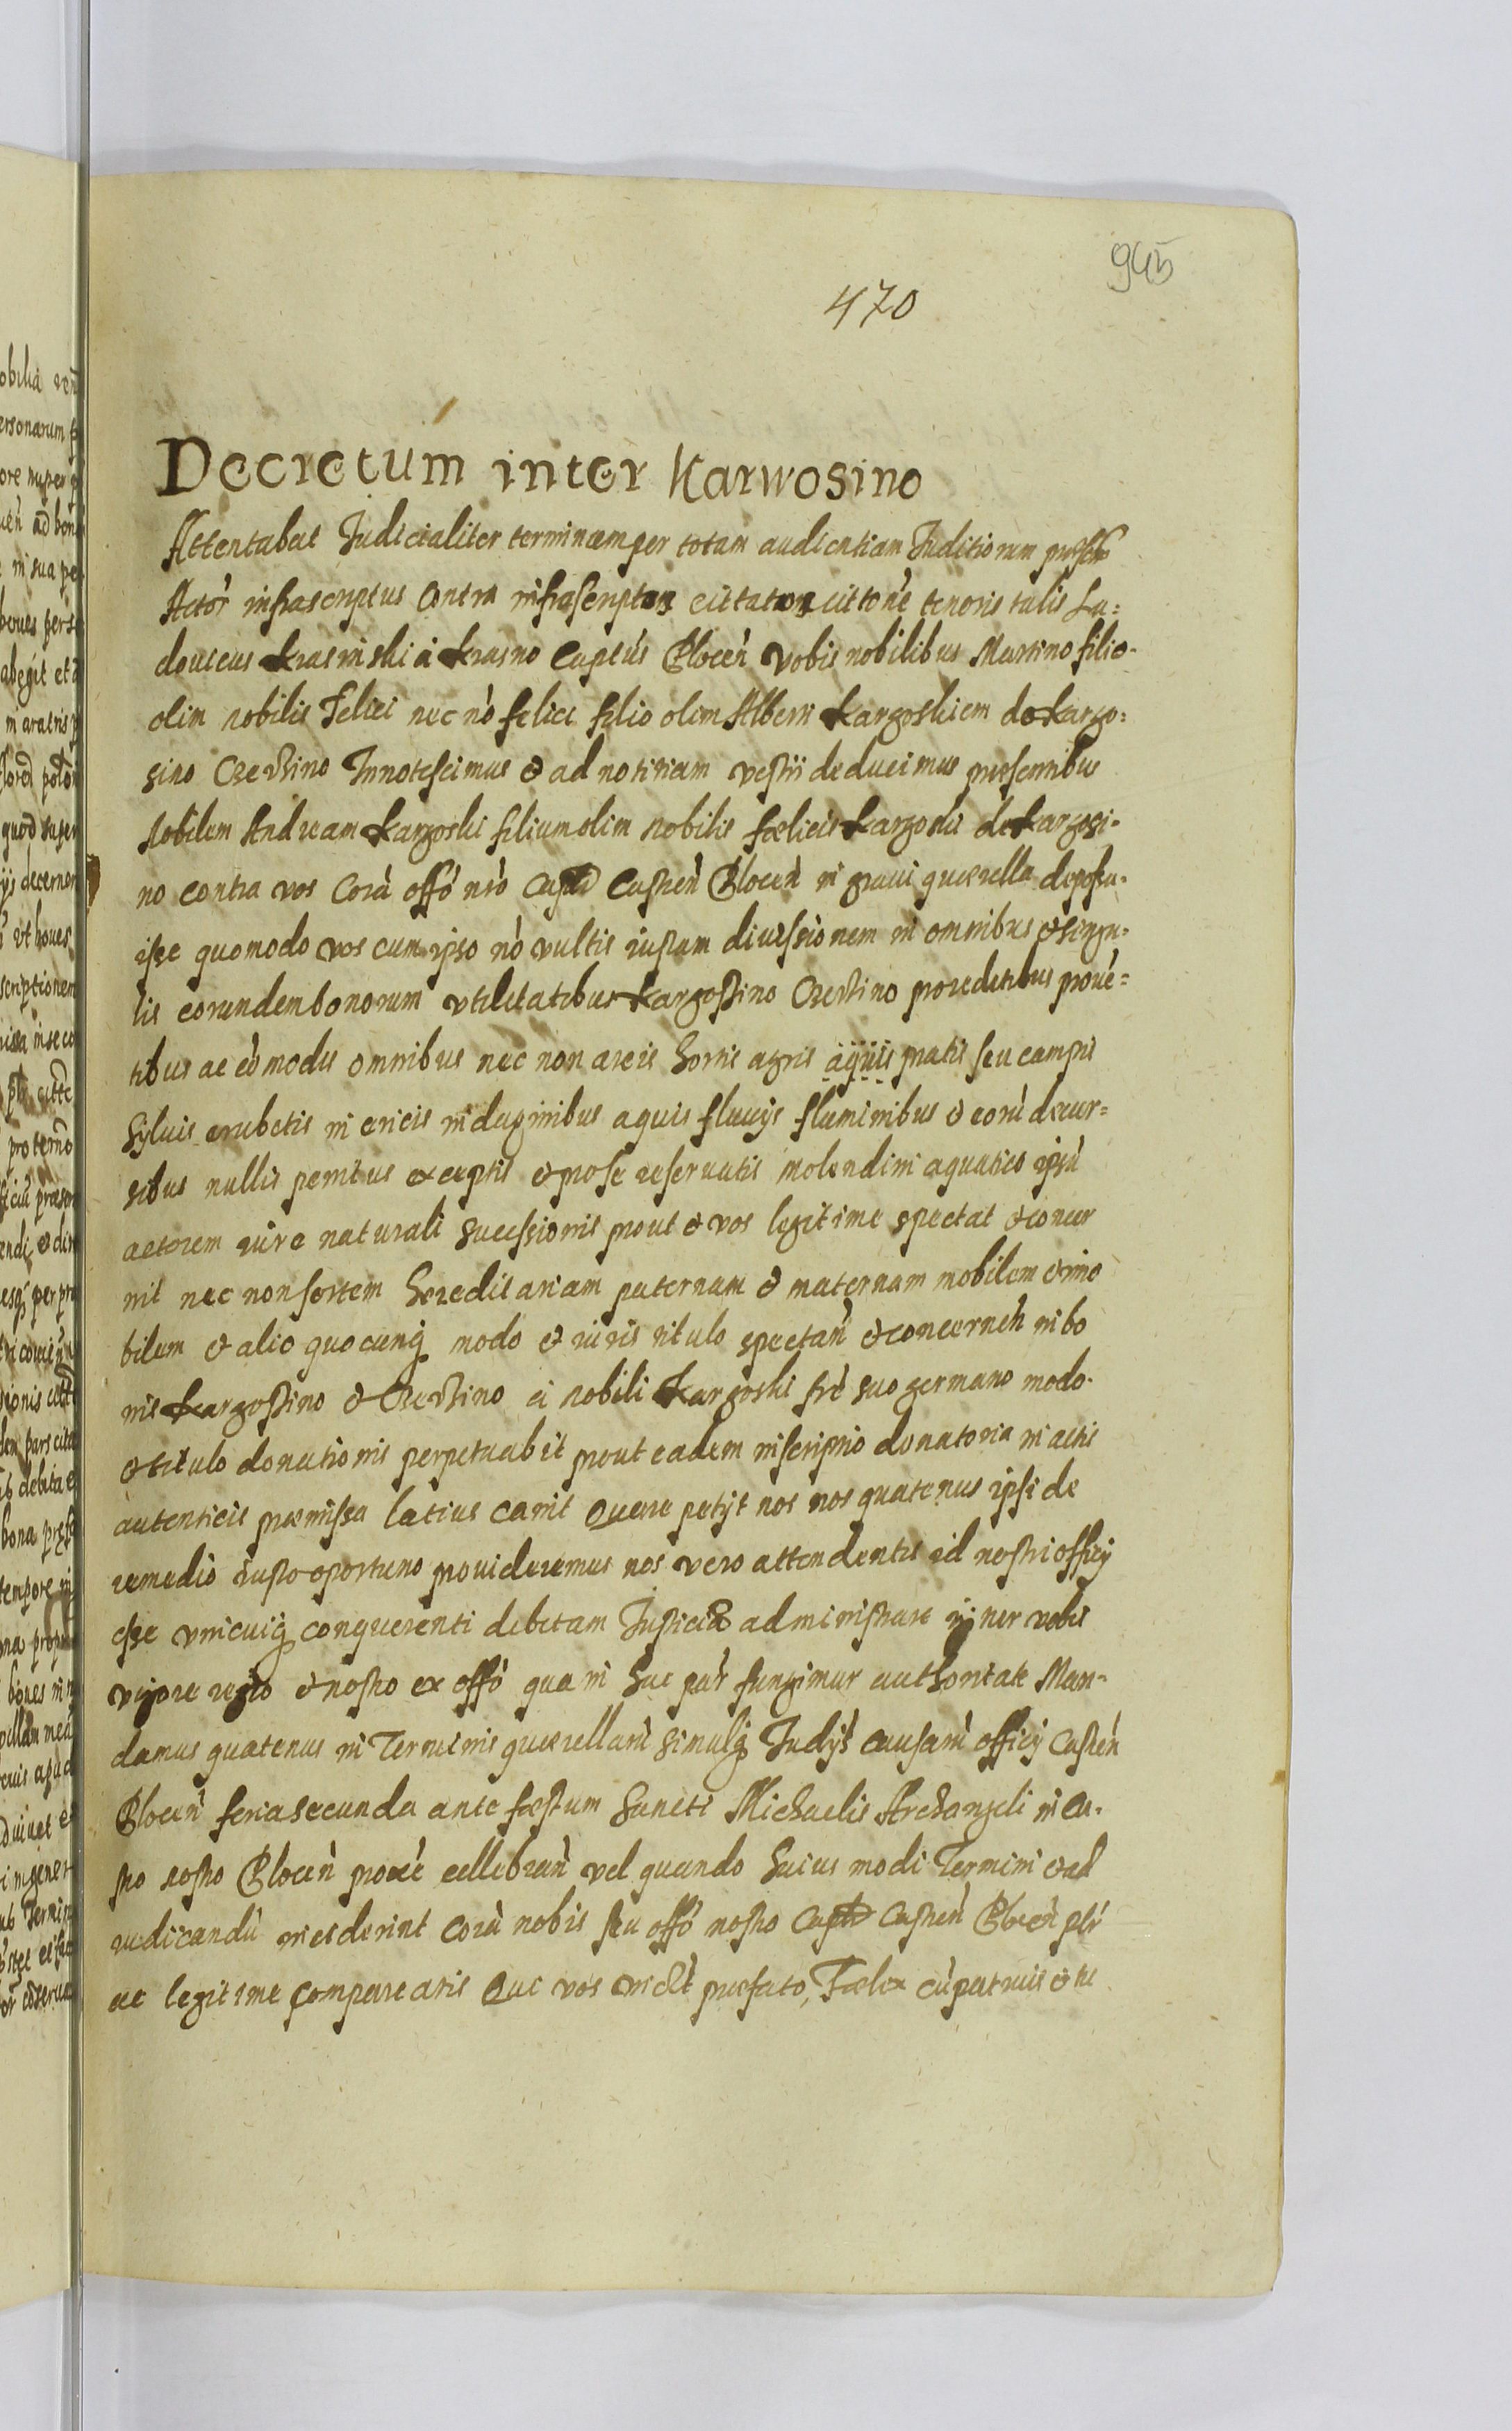 945
470
Decretum inter Karwosino
Attentabat Judicialiter terminum per totam audientiam Juditiorum
Actor infrascriptus Contra infrascriptum cittatum cittone tenoris talis Lu=
douicus Krasinski à Krasno Captus Plocen Vobis nobilibus Martino filio
olim nobilis Felici nec nò felici filio olim Alberti Kargoskiem de Kargo=
sino Innotescimus & ad notitiam vestri deducimus presentibus
Nobilem Andream Kargoski filium olim nobilis fœlicis Kargoski de Kargosi-
no contra vos Corà offò nrò Capti Castren Plocen in graui quærella deposu-
isse quomodo vos cum ipso nò vultis iustam diuissionem in omnibus & singu-
lis eorundem bonorum vtilitatibus Kargossino proueè=
tibus ac còmodis omnibus nec non areis hortis agris aquis pratis seu campis
Syluis rubetis mericis indaginibus aquis fluuijs fluminibus & eorù decur=
sibus nullis penitus exceptis & pro se reseruatis molendini aquatici ipsù
actorem iure naturali successionis prout & vos legitime spectat & concer
nit nec non sortem hereditariam paternam & maternam mobilem & imo
bilem & alio quocunq modo & iuris titulo spectan & concernen in bo
nis Kargossino & ei nobili Kargoski frè suo germano modo
& titulo donationis perpetuabit prout eadem inscriptio donatoria in actis
autenticis præmissa latius canit Quare petijt nos nos quatenus ipsi de
remediò iusto oportuno prouideremus nos vero attendentes id nostri officij
esse vnicuiq conquerenti debitam Justiciã administrare vobis
vigore regio & nostro ex offò qua in hac par fungimur authoritate Man-
damus quatenus in Terminis quærellarù simulq Judijs causarù officij Castren
Plocen feria secunda ante festum Sancti Michaelis Archangeli in ca-
stro nostro Plocen cellebran vel quando huius modi Termini & ad
iudicandù inciderint Corà nobis seu offò nostro Capti Castren Plocen
ac legitime compareatis Quia vos præfato, Fœlix cù patruis & te